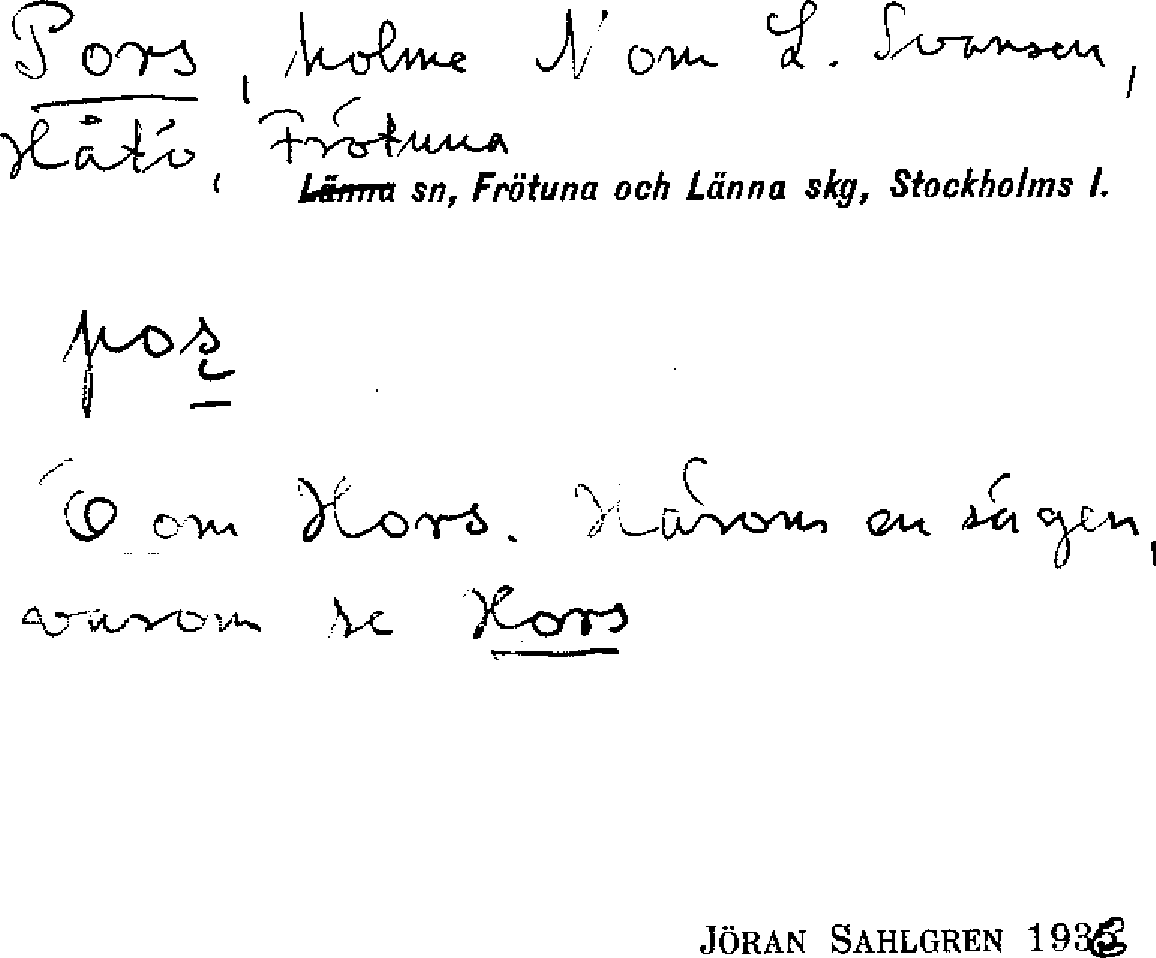 Pors, holme N om L. Svansen,
Håtö, Frötuna
Länna sn, Frötuna och Länna skg, Stockholms l.
pos
Ö om Hors. Härom en sägen,
varom se Hors
JÖRAN SAHLGREN 1936